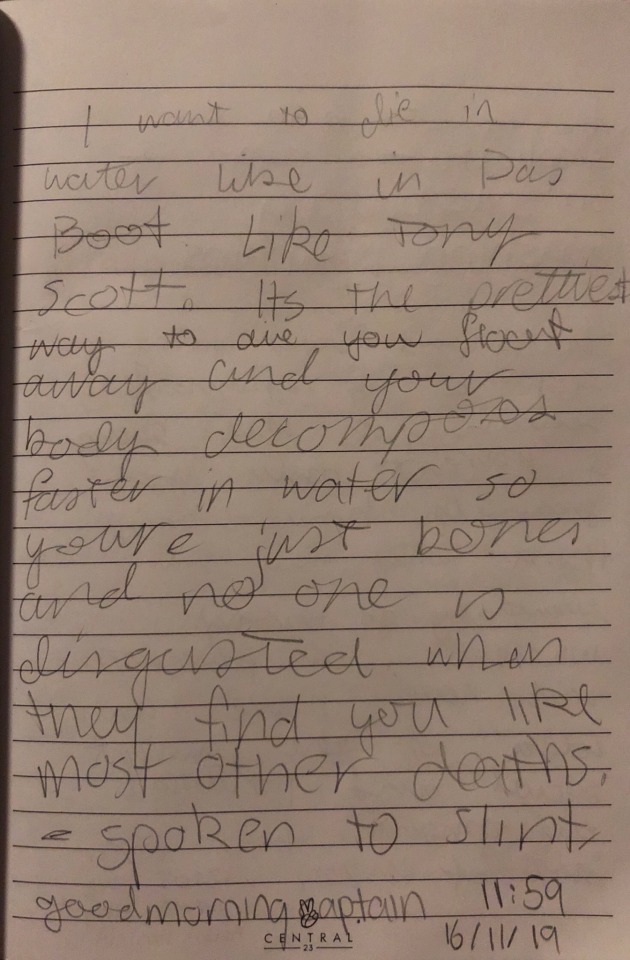 I want to die in
water like in Das
Boot Like Tony
Scott. Its the prettiest
way to die you float
away and your
body decomposes
faster in water so
youre just bones
and no one is
disgusted when
they find you like
most other deaths.
- spoken to slint,
goodmorning captain 11:59
16/11/19
CENTRAL
23